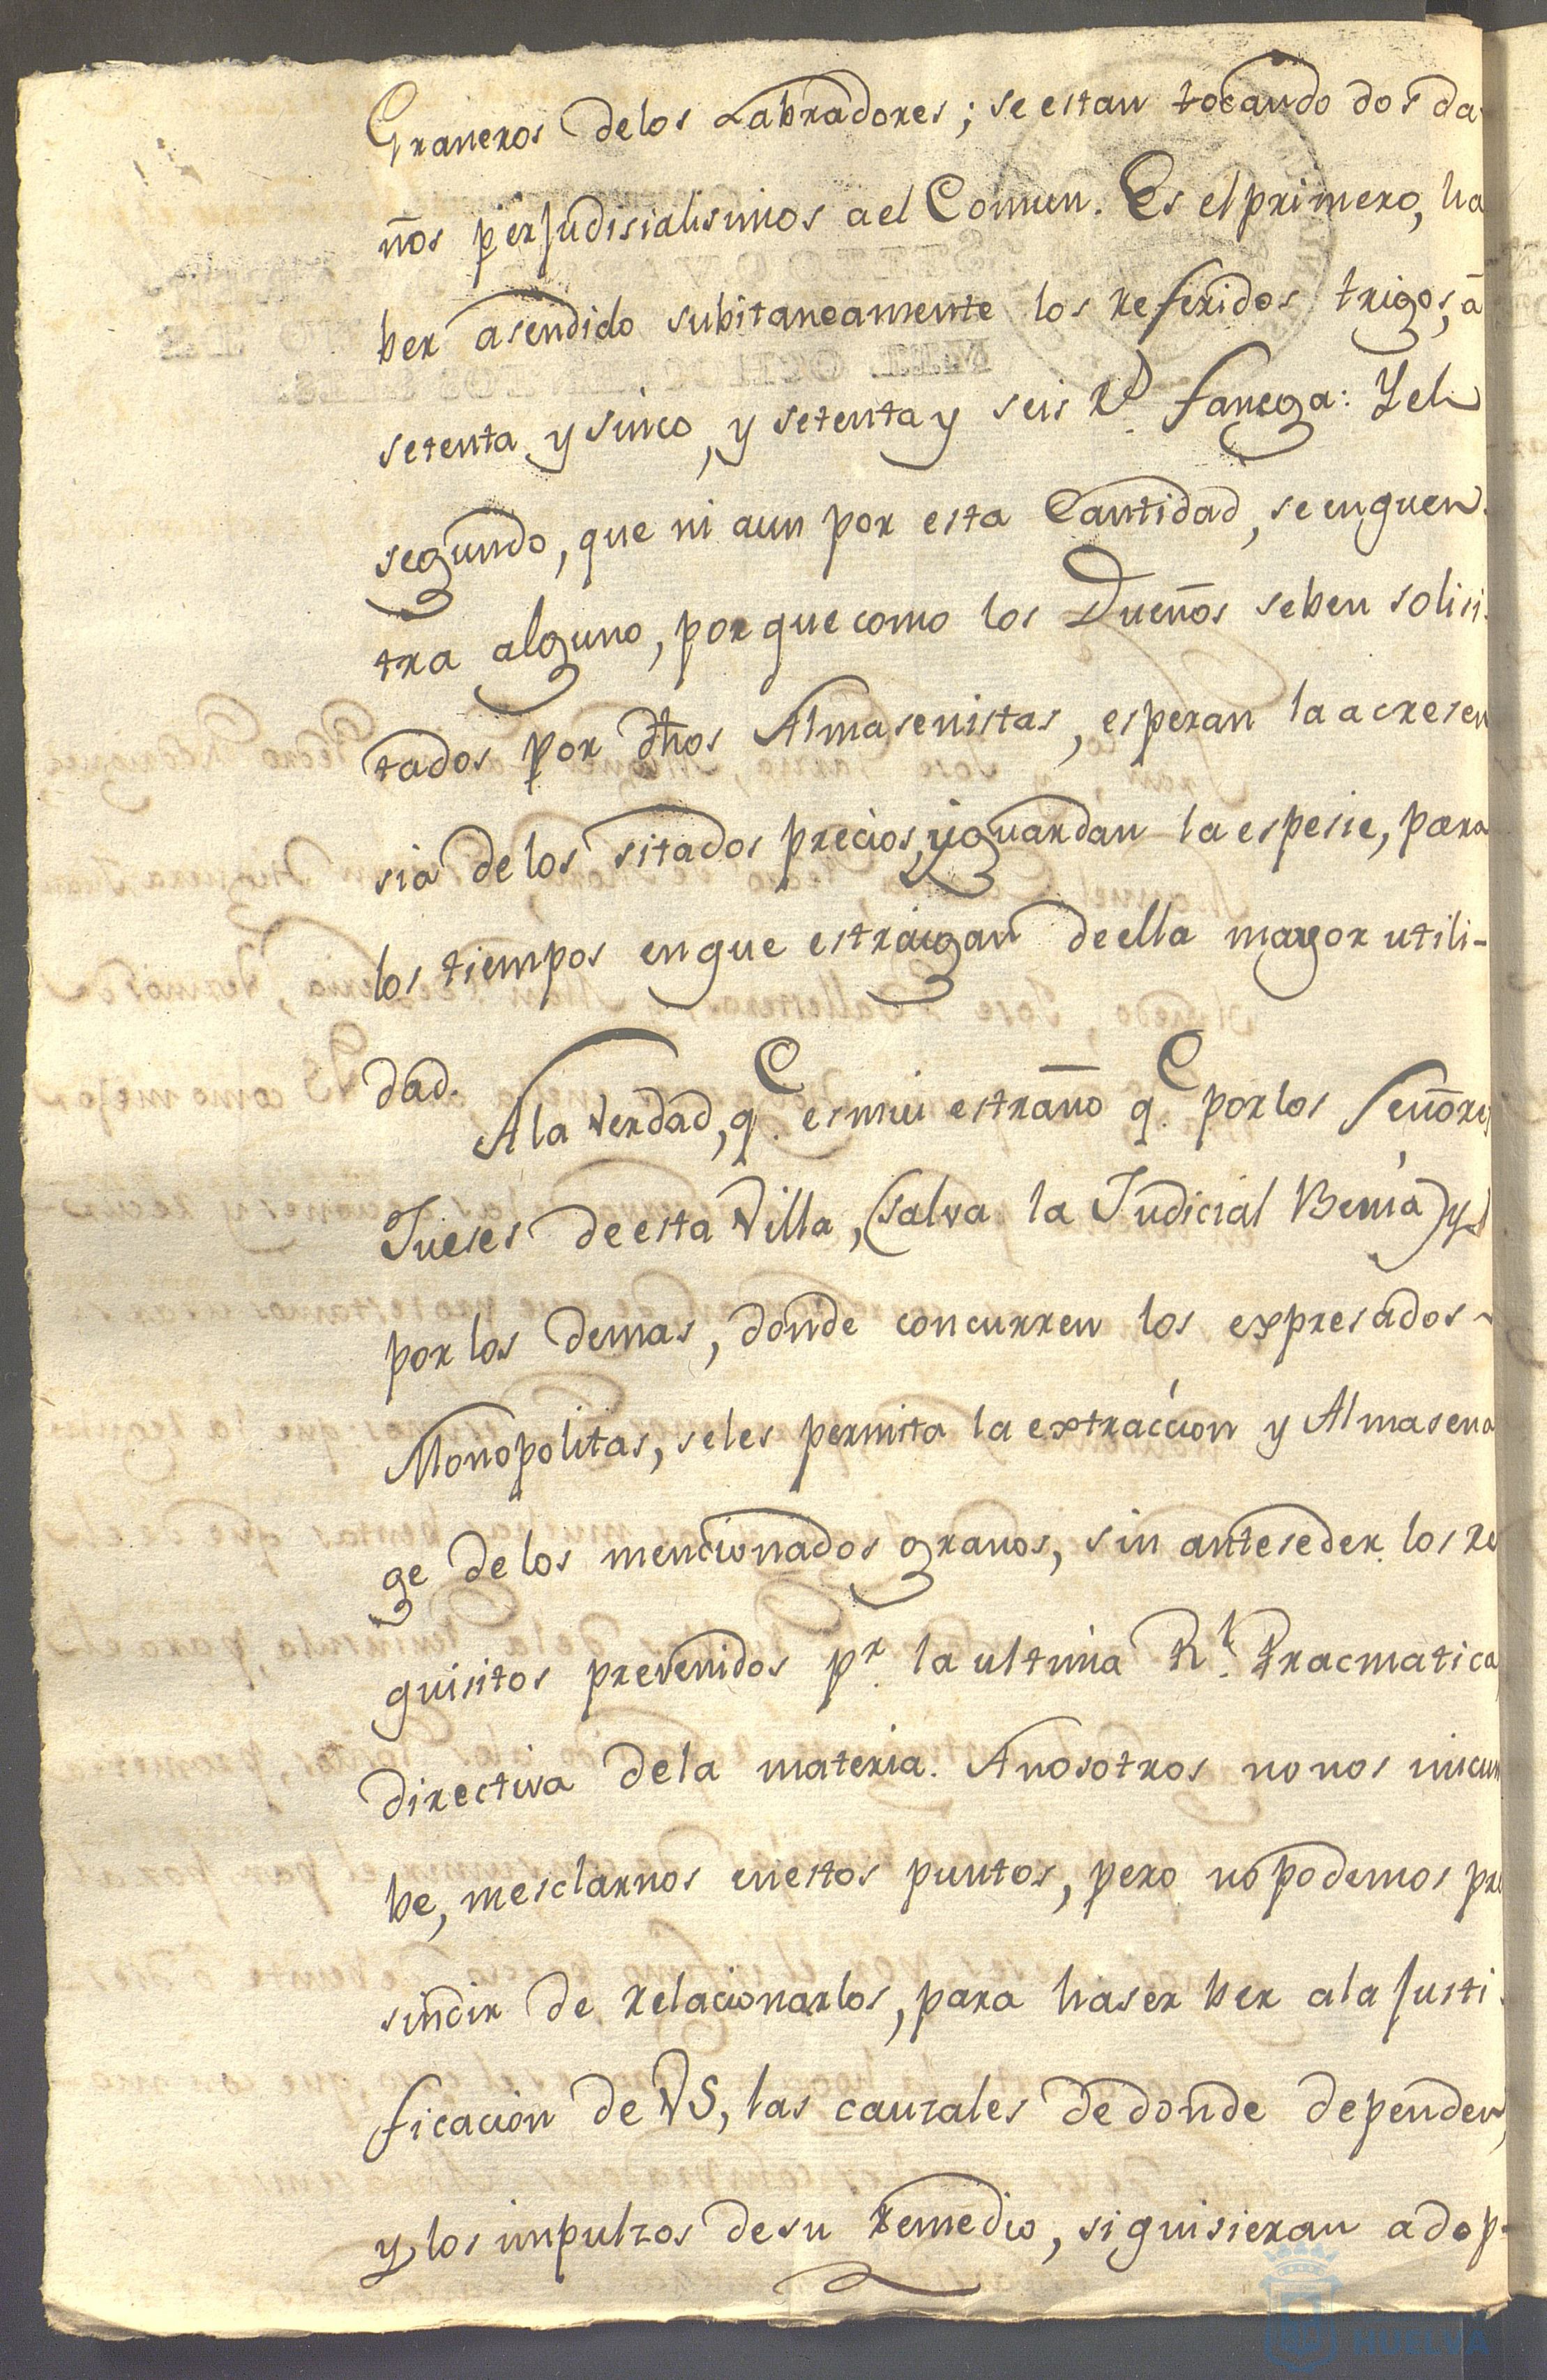 Graneros delos Labradores; se estan tocando dos da-
ños perjudisialisimos a el Comun. Es el primero, ha
ber asendido subitaneamente los referidos trigos, â
setenta y sinco, y setenta y seis Rs. fanega: Y el
segundo, que ni aun por esta Cantidad, se enquen-
tra alguno, por que como los Dueños se ben solisi-
tados por dhos Almasenistas, esperan la acresen
sia de los sitados precios, y guardan la espesie, para
los tiempos en que estraigan de ella mayor utili-
dad.
A la Verdad, qe. es mui estraño qe. por los Señores
Jueses de esta Villa, (salva la Judicial Benia) y
por los demas, donde concurren los expresados
Monopolitas, se les permita la extraccion y Almasena
ge de los mencionados granos, sin anteseder los re
quisitos prevenidos pr. la ultima Rl. Pracmatica
directiva de la materia. A nosotros no nos incum
be, mesclarnos en estos puntos, pero no podemos pre
sindir de relacionarlos, para haser ber a la Justi-
ficacion de VS, las causales de donde dependen,
y los impulsos de su remedio, si quisieran adop-
HUELVA